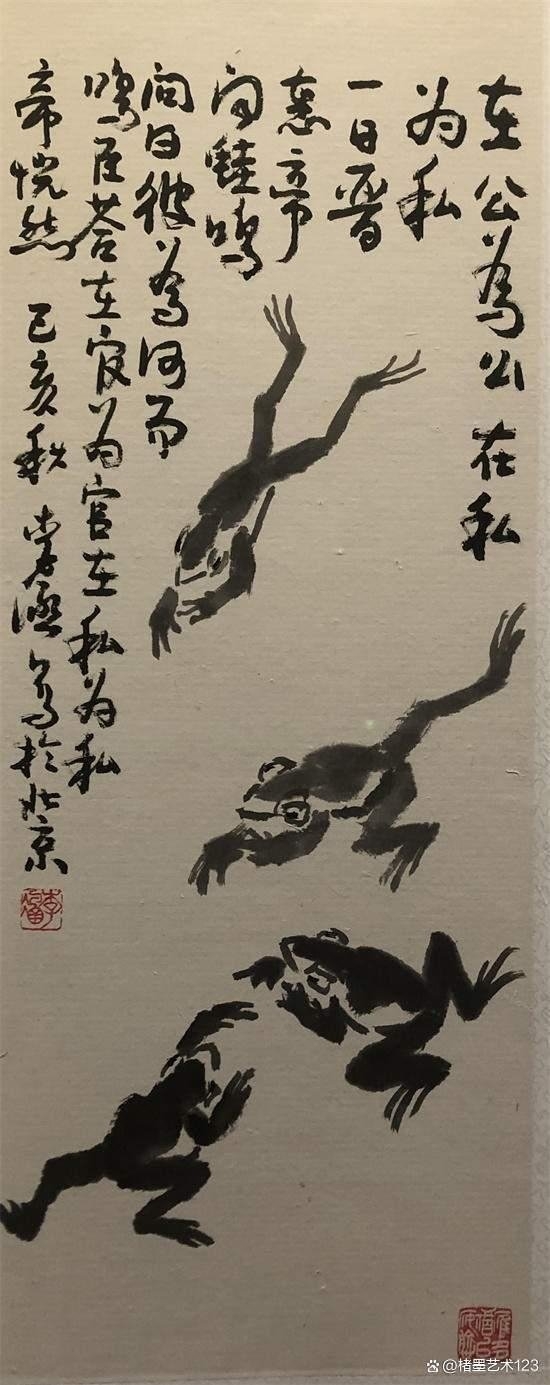 在公為公在私
为私
一日晋
惠帝
闻蛙鸣
问曰彼為何而
鸣臣答在官为官在私为私
帝恍然 己亥秋 李滬写於北京
楮墨艺术123